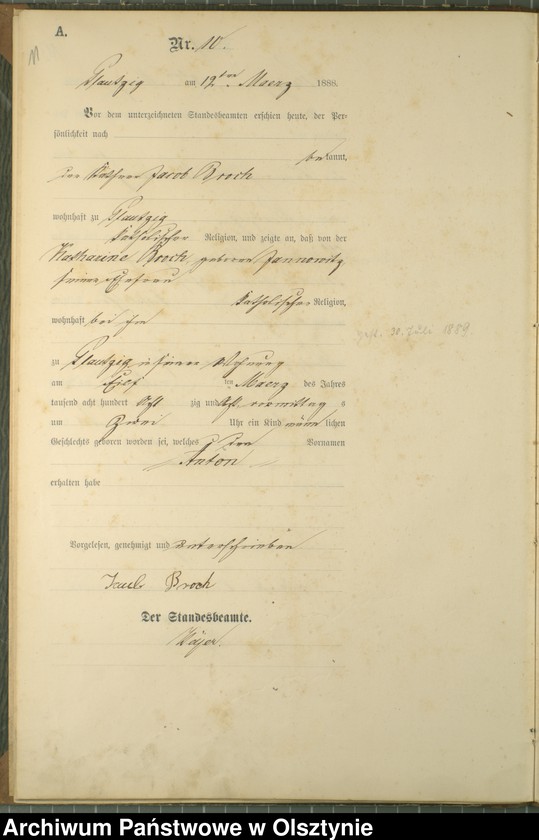 A.
Nr. 10.
Plautzig am 12ten Maerz 1888.
Vor dem unterzeichneten Standesbeamten erschien heute, der Per-
sönlichkeit nach
bekannt,
der Käthner Jacob Broch
wohnhaft zu Plautzig
katholischer Religion, und zeigte an, daß von der
Katharine Broch geborene Jannowitz
seiner Ehefrau
katholischer Religion,
wohnhaft bei ihm
gest. 20. Juli 1889
zu Plautzig in seiner Wohnung
am Elf ten Maerz des Jahres
tausend acht hundert Acht zig und Acht vormittag s
um Zwei Uhr ein Kind männ lichen
Geschlechts geboren worden sei, welches den Vornamen
Anton
erhalten habe
Vorgelesen, genehmigt und unterschrieben
Broch
Der Standesbeamte.
Archiwum Państwowe w Olsztynie